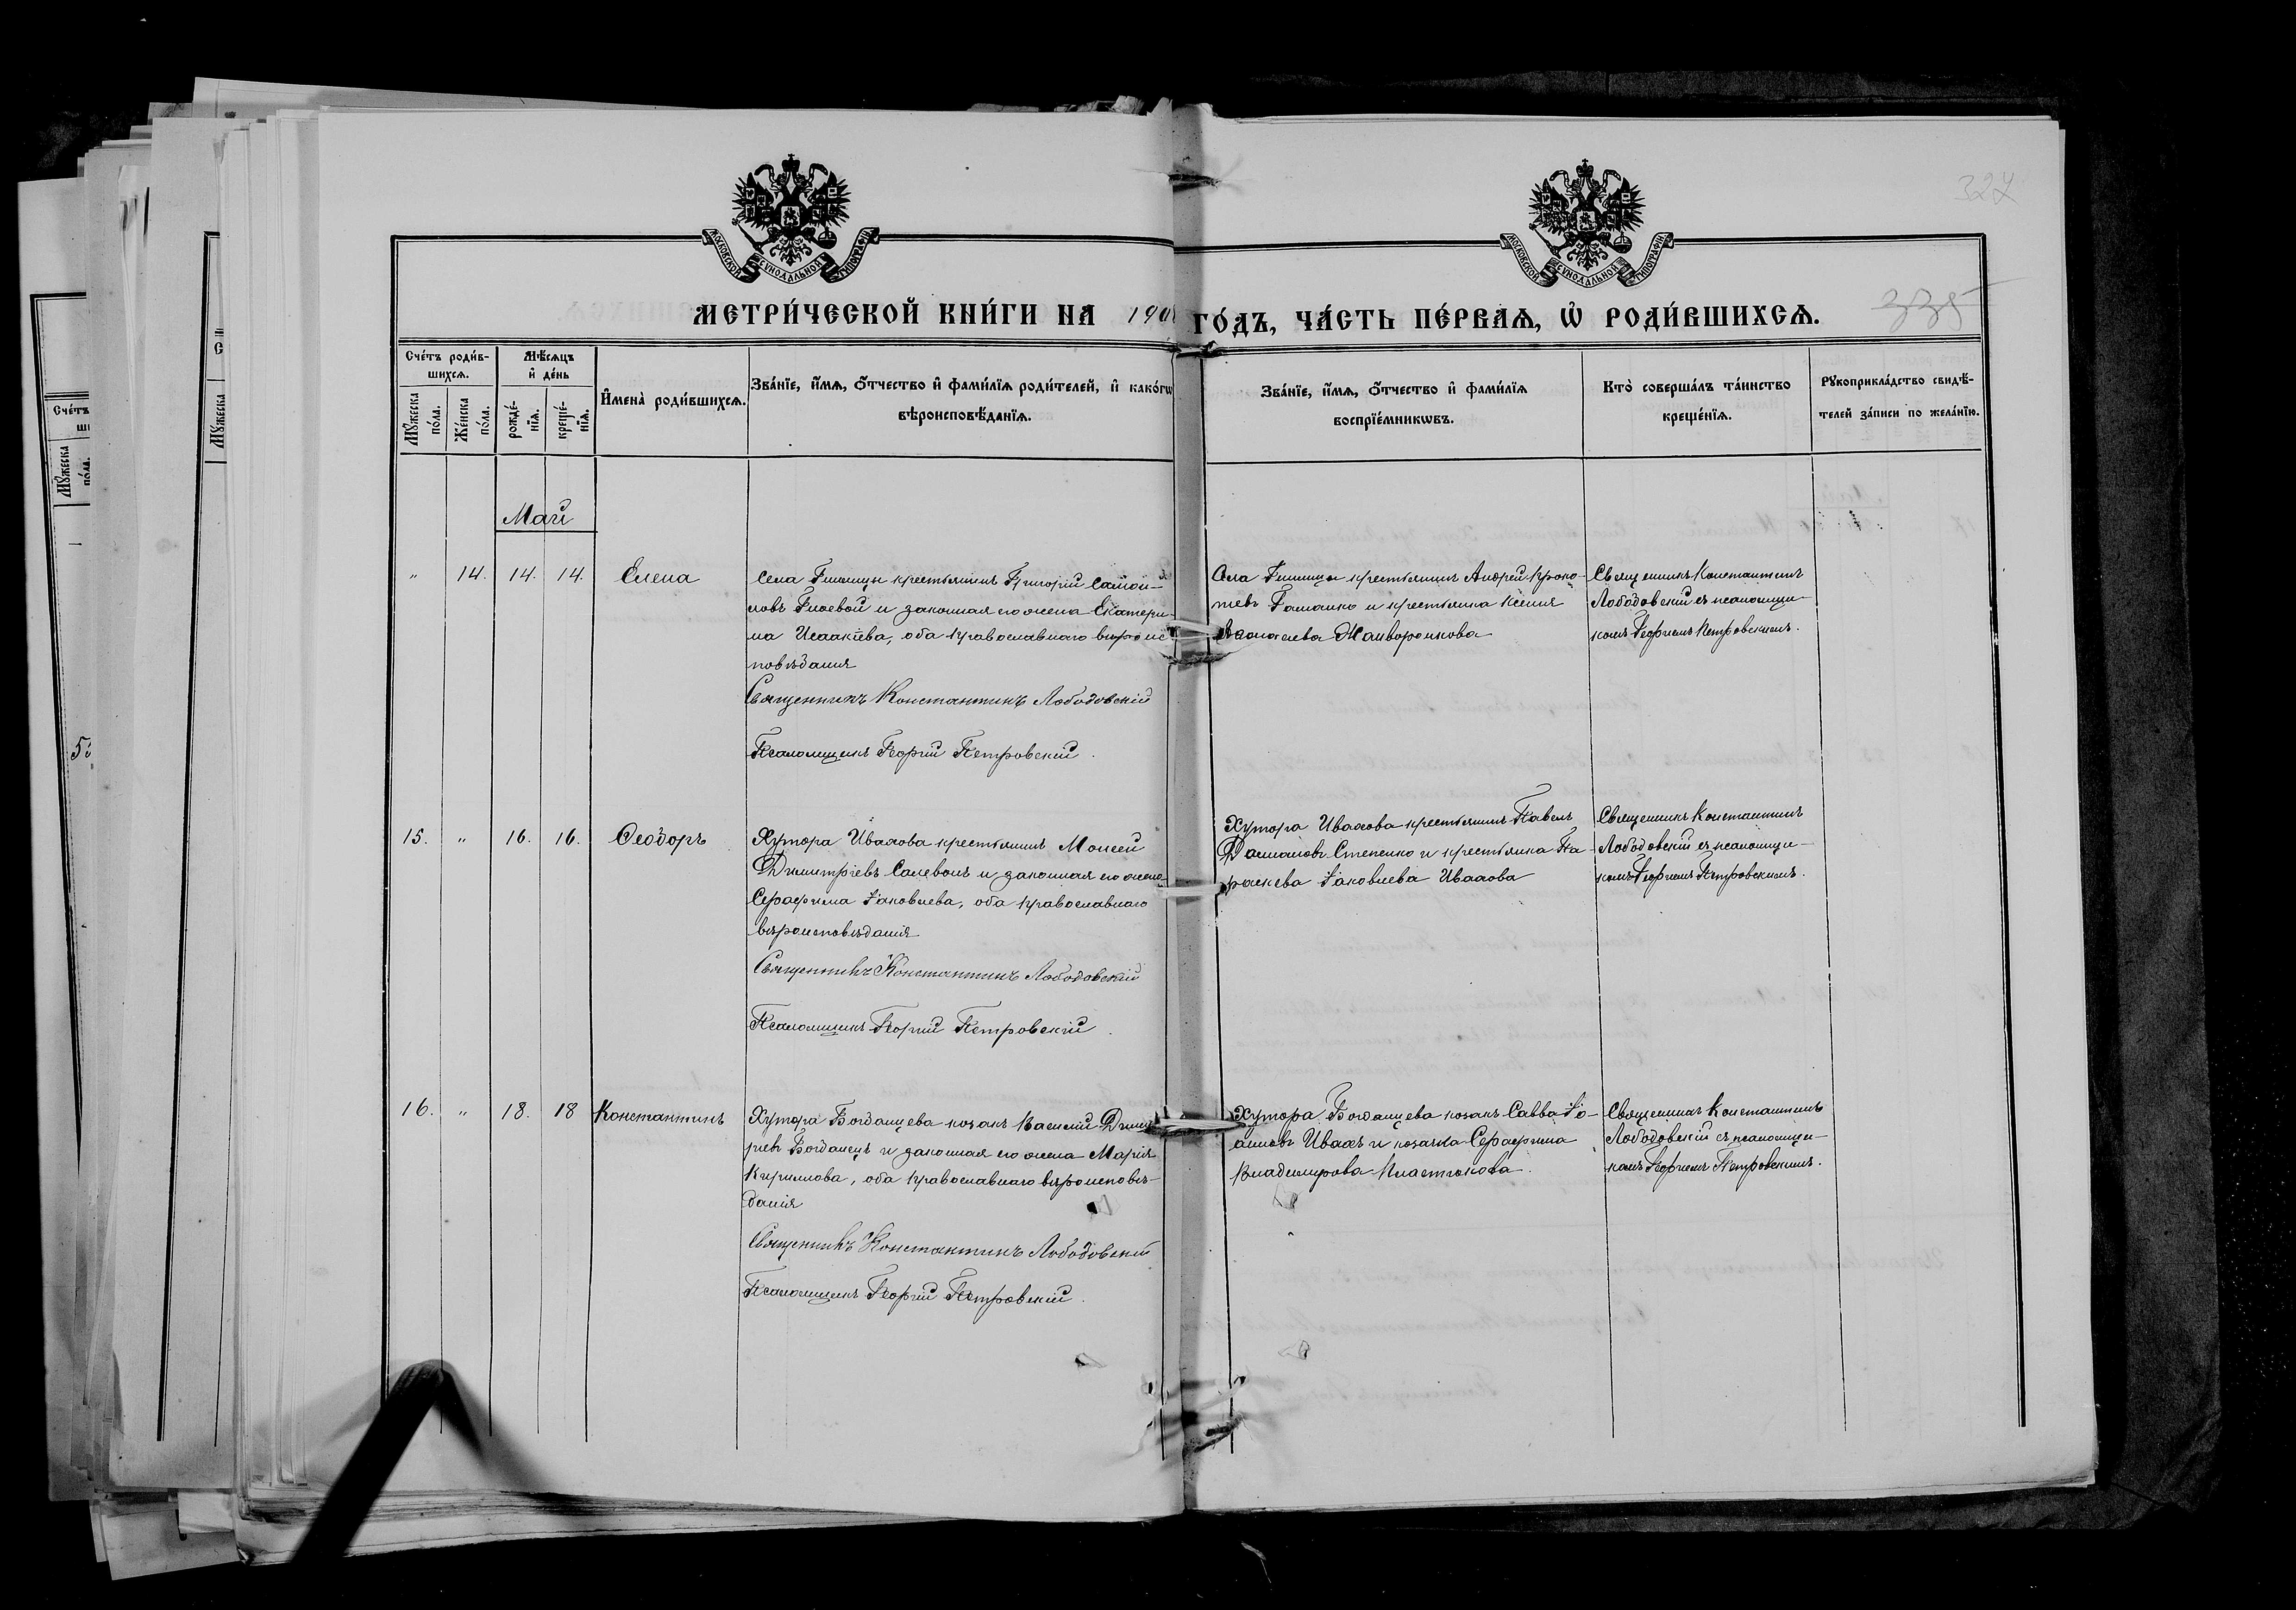 327
335
МОСКОВСКОЙ СУНОДАЛЬНОЙ ТИПОГРАФІИ
МОСКОВСКОЙ СУНОДАЛЬНОЙ ТИПОГРАФІИ
МЕТРИ́ЧЕСКОЙ КНИ́ГИ НА 190 ГО́ДЪ, ЧА́СТЬ ПЕ́РВАѦ, Ѡ҆ РОДИ́ВШИХСѦ.
Сче́тъ роди́в-
шихсѧ.
Мꙋ́жеска
по́ла.
Же́нска
по́ла.
Мѣ́сѧцъ
и҆ де́нь
рожде́-
нїѧ.
креще́-
нїѧ.
И҆мена̀ роди́вшихсѧ.
Зва́нїе, и҆́мѧ, ѻ҆́тчество и҆ фами́лїѧ роди́телей, и҆ како́гѡ
вѣроисповѣ́данїѧ.
Зва́нїе, и҆́мѧ, ѻ҆́тчество и҆ фами́лїѧ
воспрїе́мникѡвъ.
Кто̀ соверша́лъ та́инство
креще́нїѧ.
Рꙋкоприкла́дство свидѣ́-
телей за́писи по жела́нїю.
Май
" 14. 14. 14. Елена
крестьянинъ Григорій Самой-
ловъ и законная его жена Екатери-
на Исаакіева, оба православнаго вѣроис-
повѣданія
Священникъ Константинъ Лободовскій
Псаломщикъ Георгій Петровскій.
крестьянинъ Андрей Проко-
и крестьянка Ксенія
Жаворонкова
Священникъ Константинъ
Лободовскій съ псаломщи-
комъ Георгіемъ Петровскимъ.
15. " 16. 16. Ѳеодоръ
Хутора Ивахова крестьянинъ Моисей
Димитріевъ и законная его жена
Серафима Іаковлева, оба православнаго
вѣроисповѣданія
Священникъ Константинъ Лободовскій
Псаломщикъ Георгій Петровскій.
Хутора Ивахова крестьянинъ Павелъ
Степенко и крестьянка Па-
раскева Іаковлева Ивахова
Священникъ Константинъ
Лободовскій съ псаломщи-
комъ Георгіемъ Петровскимъ.
16. " 18. 18 Константинъ
Хутора Богданцева козакъ Василій Димит-
ріевъ Богданецъ и законная его жена Марія
Кириллова, оба православнаго вѣроисповѣ-
данія
Священникъ Константинъ Лободовскій
Псаломщикъ Георгій Петровскій.
Хутора Богданцева козакъ Савва Іо-
анновъ Ивахъ и козачка Серафима
Владимірова
Священникъ Константинъ
Лободовскій съ псаломщи-
комъ Георгіемъ Петровскимъ.